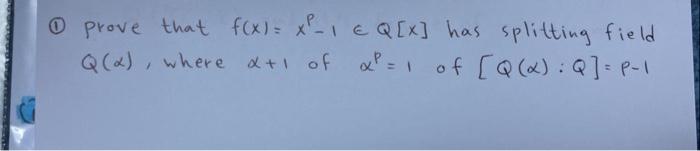 ① prove that f(x) = x^p - 1 ∈ Q[x] has splitting field
Q(α), where α+1 of α^p = 1 of [Q(α) : Q] = p-1